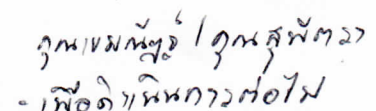 คุณเขมณัฏฐ์ / คุณสุพัตรา
- เพื่อดำเนินการต่อไป